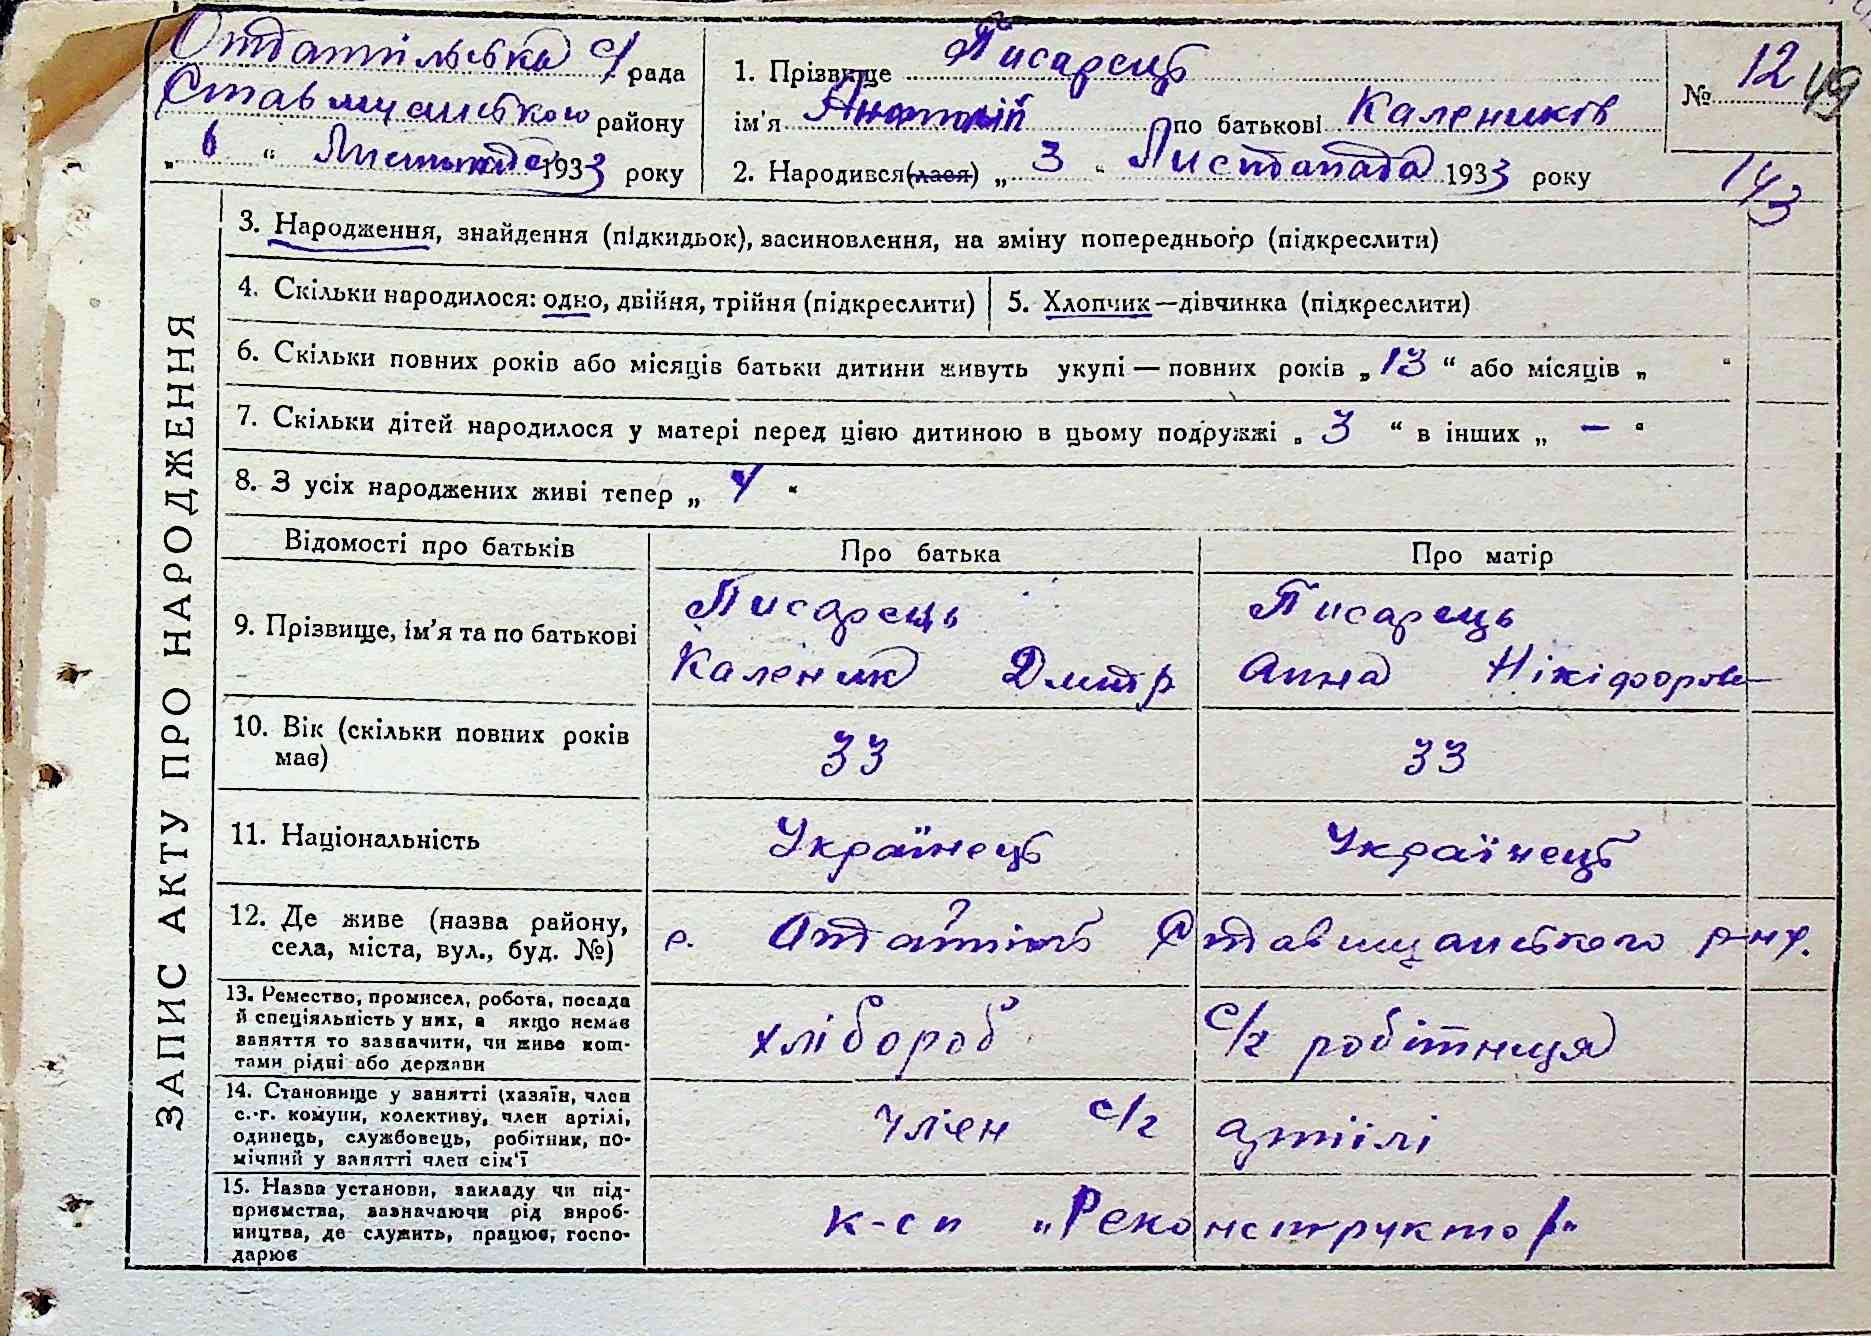 Отдатільська с/рада
Ставищанського району
„ 6 “ Листопада 1933 року
1. Прізвище Писарець
ім'я Анатолій по батькові Калеників
2. Народився(лася) „ 3 “ Листопада 1933 року
№ 12
49
143
ЗАПИС АКТУ ПРО НАРОДЖЕННЯ
3. Народження, знайдення (підкидьок), засиновлення, на зміну попереднього (підкреслити)
4. Скільки народилося: одно, двійня, трійня (підкреслити)
5. Хлопчик—дівчинка (підкреслити)
6. Скільки повних років або місяців батьки дитини живуть укупі — повних років „ 13 “ або місяців „ “
7. Скільки дітей народилося у матері перед цією дитиною в цьому подружжі „ 3 “ в інших „ — “
8. З усіх народжених живі тепер „ 4 “
Відомості про батьків
Про батька
Про матір
9. Прізвище, ім'я та по батькові
Писарець
Каленик Дмитр
Писарець
Анна Нікіфоров
10. Вік (скільки повних років
має)
33
33
11. Національність
Українець
Українець
12. Де живе (назва району,
села, міста, вул., буд. №)
с. Отдатіль Ставищанського р-ну.
13. Ремество, промисел, робота, посада
й спеціяльність у них, а якщо немає
заняття то зазначити, чи живе кош-
тами рідні або держави
хлібороб
с/г робітниця
14. Становище у занятті (хазяїн, член
с.-г. комуни, колективу, член артілі,
одинець, службовець, робітник, по-
мічний у занятті член сім'ї
член с/г артілі
15. Назва установи, закладу чи під-
приємства, зазначаючи рід вироб-
ництва, де служить, працює, госпо-
дарює
к-сп „Реконструктор“